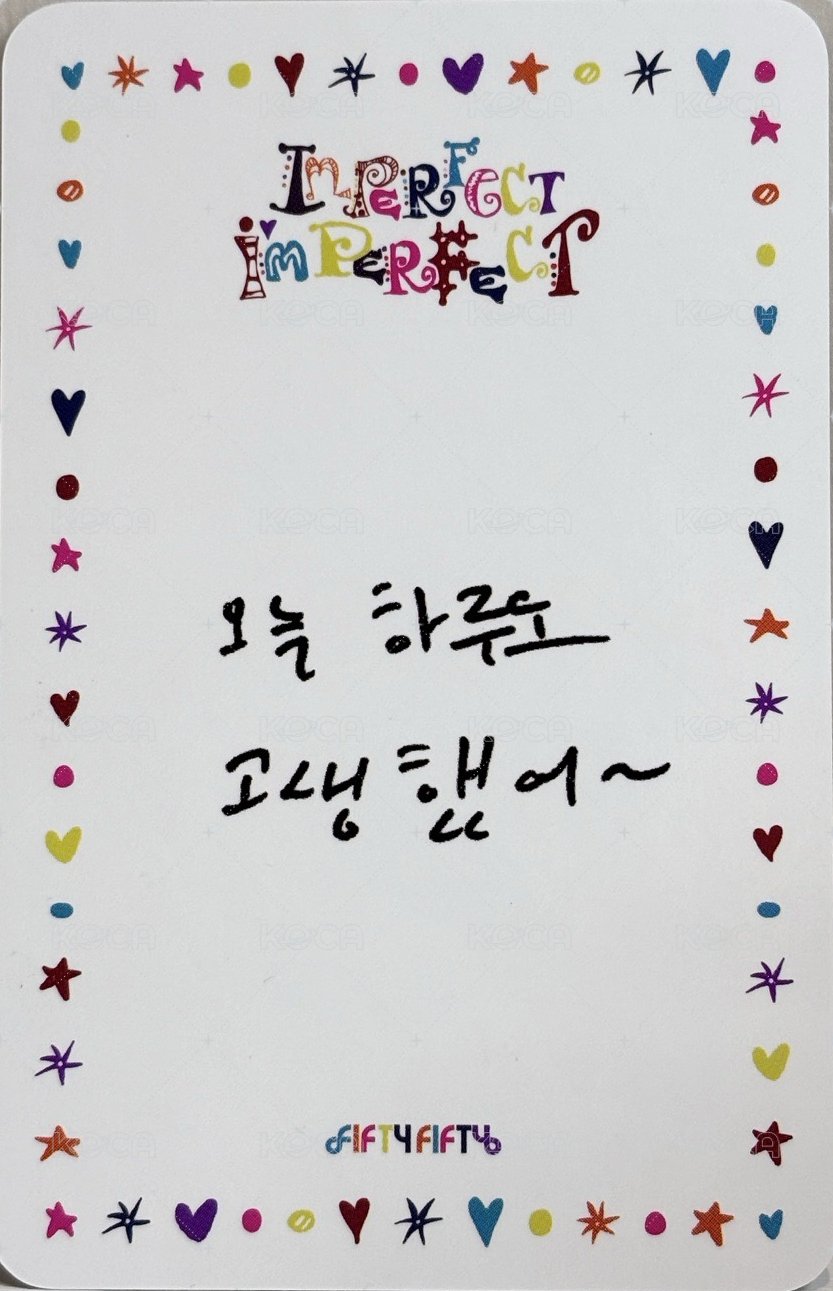 ImPeRFeCT
i'm PeRFeCT
오늘 하루도
고생했어~
FIFTY FIFTY